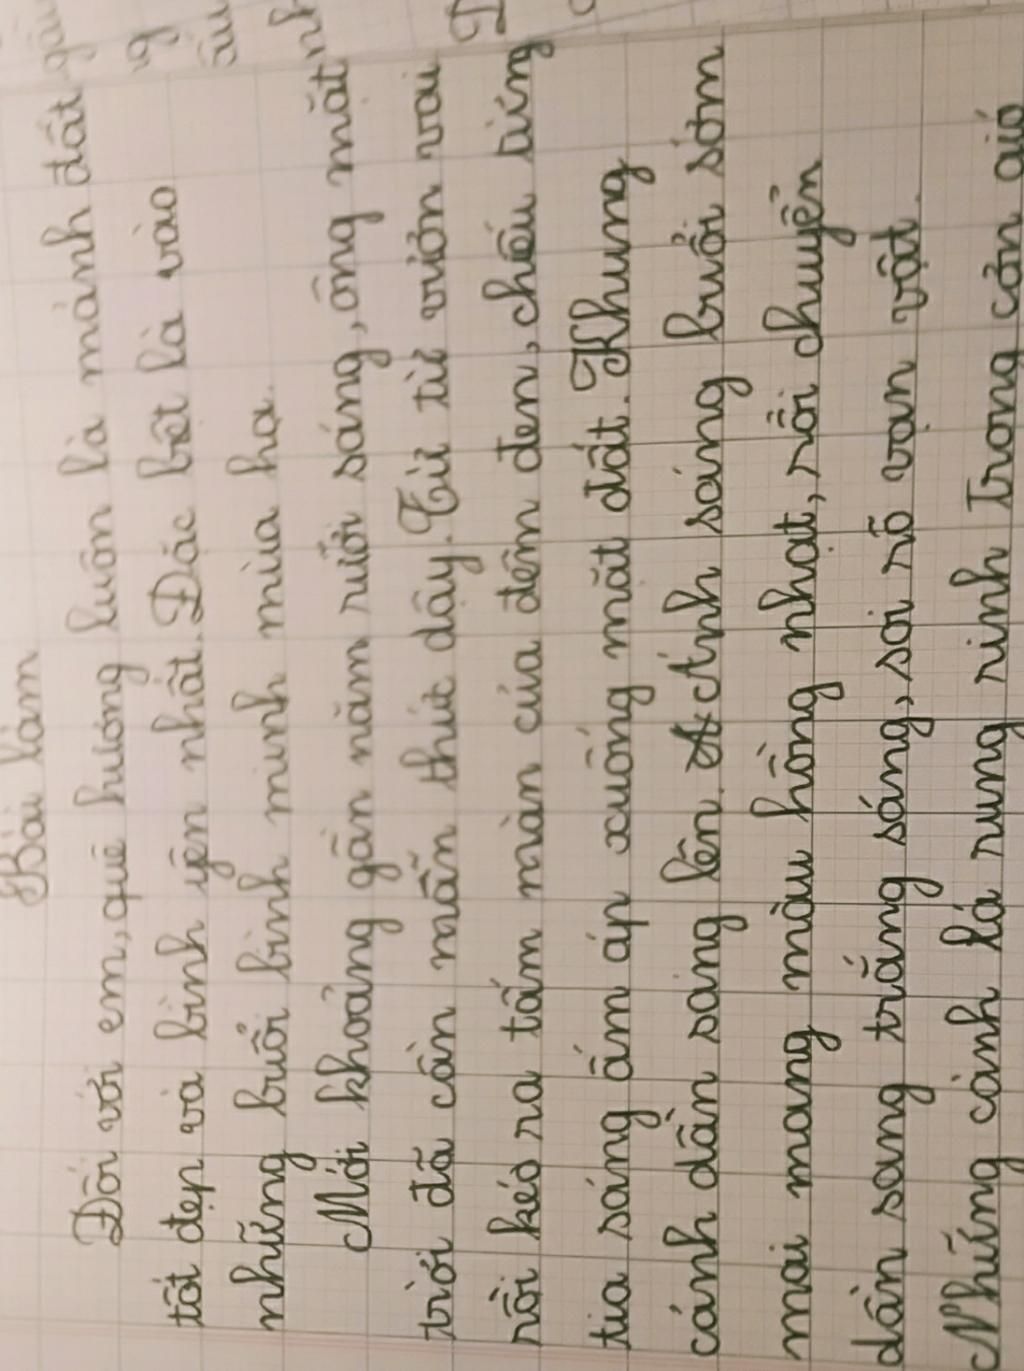 Bài làm
Đối với em, quê hương luôn là mảnh đất
tốt đẹp và bình yên nhất. Đặc bêt là vào
những buổi bình minh mùa hạ.
Mới khoảng gần năm rưỡi sáng, ông mặt
trời đã cần mẫn thức dậy. Từ từ vươn vai
rồi kéo ra tấm màn của đêm đen, chếu từng
tia sáng ấm áp xuống mặt đất. Khung
cảnh dần sang lên. Ánh sáng buổi sớm
mai mang màu hồng nhạt, rồi chuyển
dần sang trắng sáng, soi rõ vạn vật.
Những cành lá rung rinh trong cơn gió